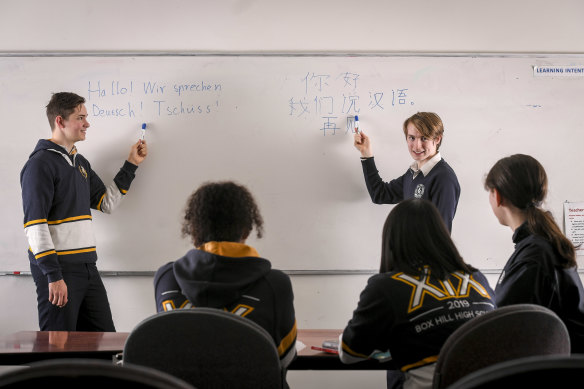 Hallo! Wir sprechen
Deutsch! Tschüss!
你好
我们说汉语。
再
LEARNING INTENT
XIX
2019
BOX HILL HIGH SC